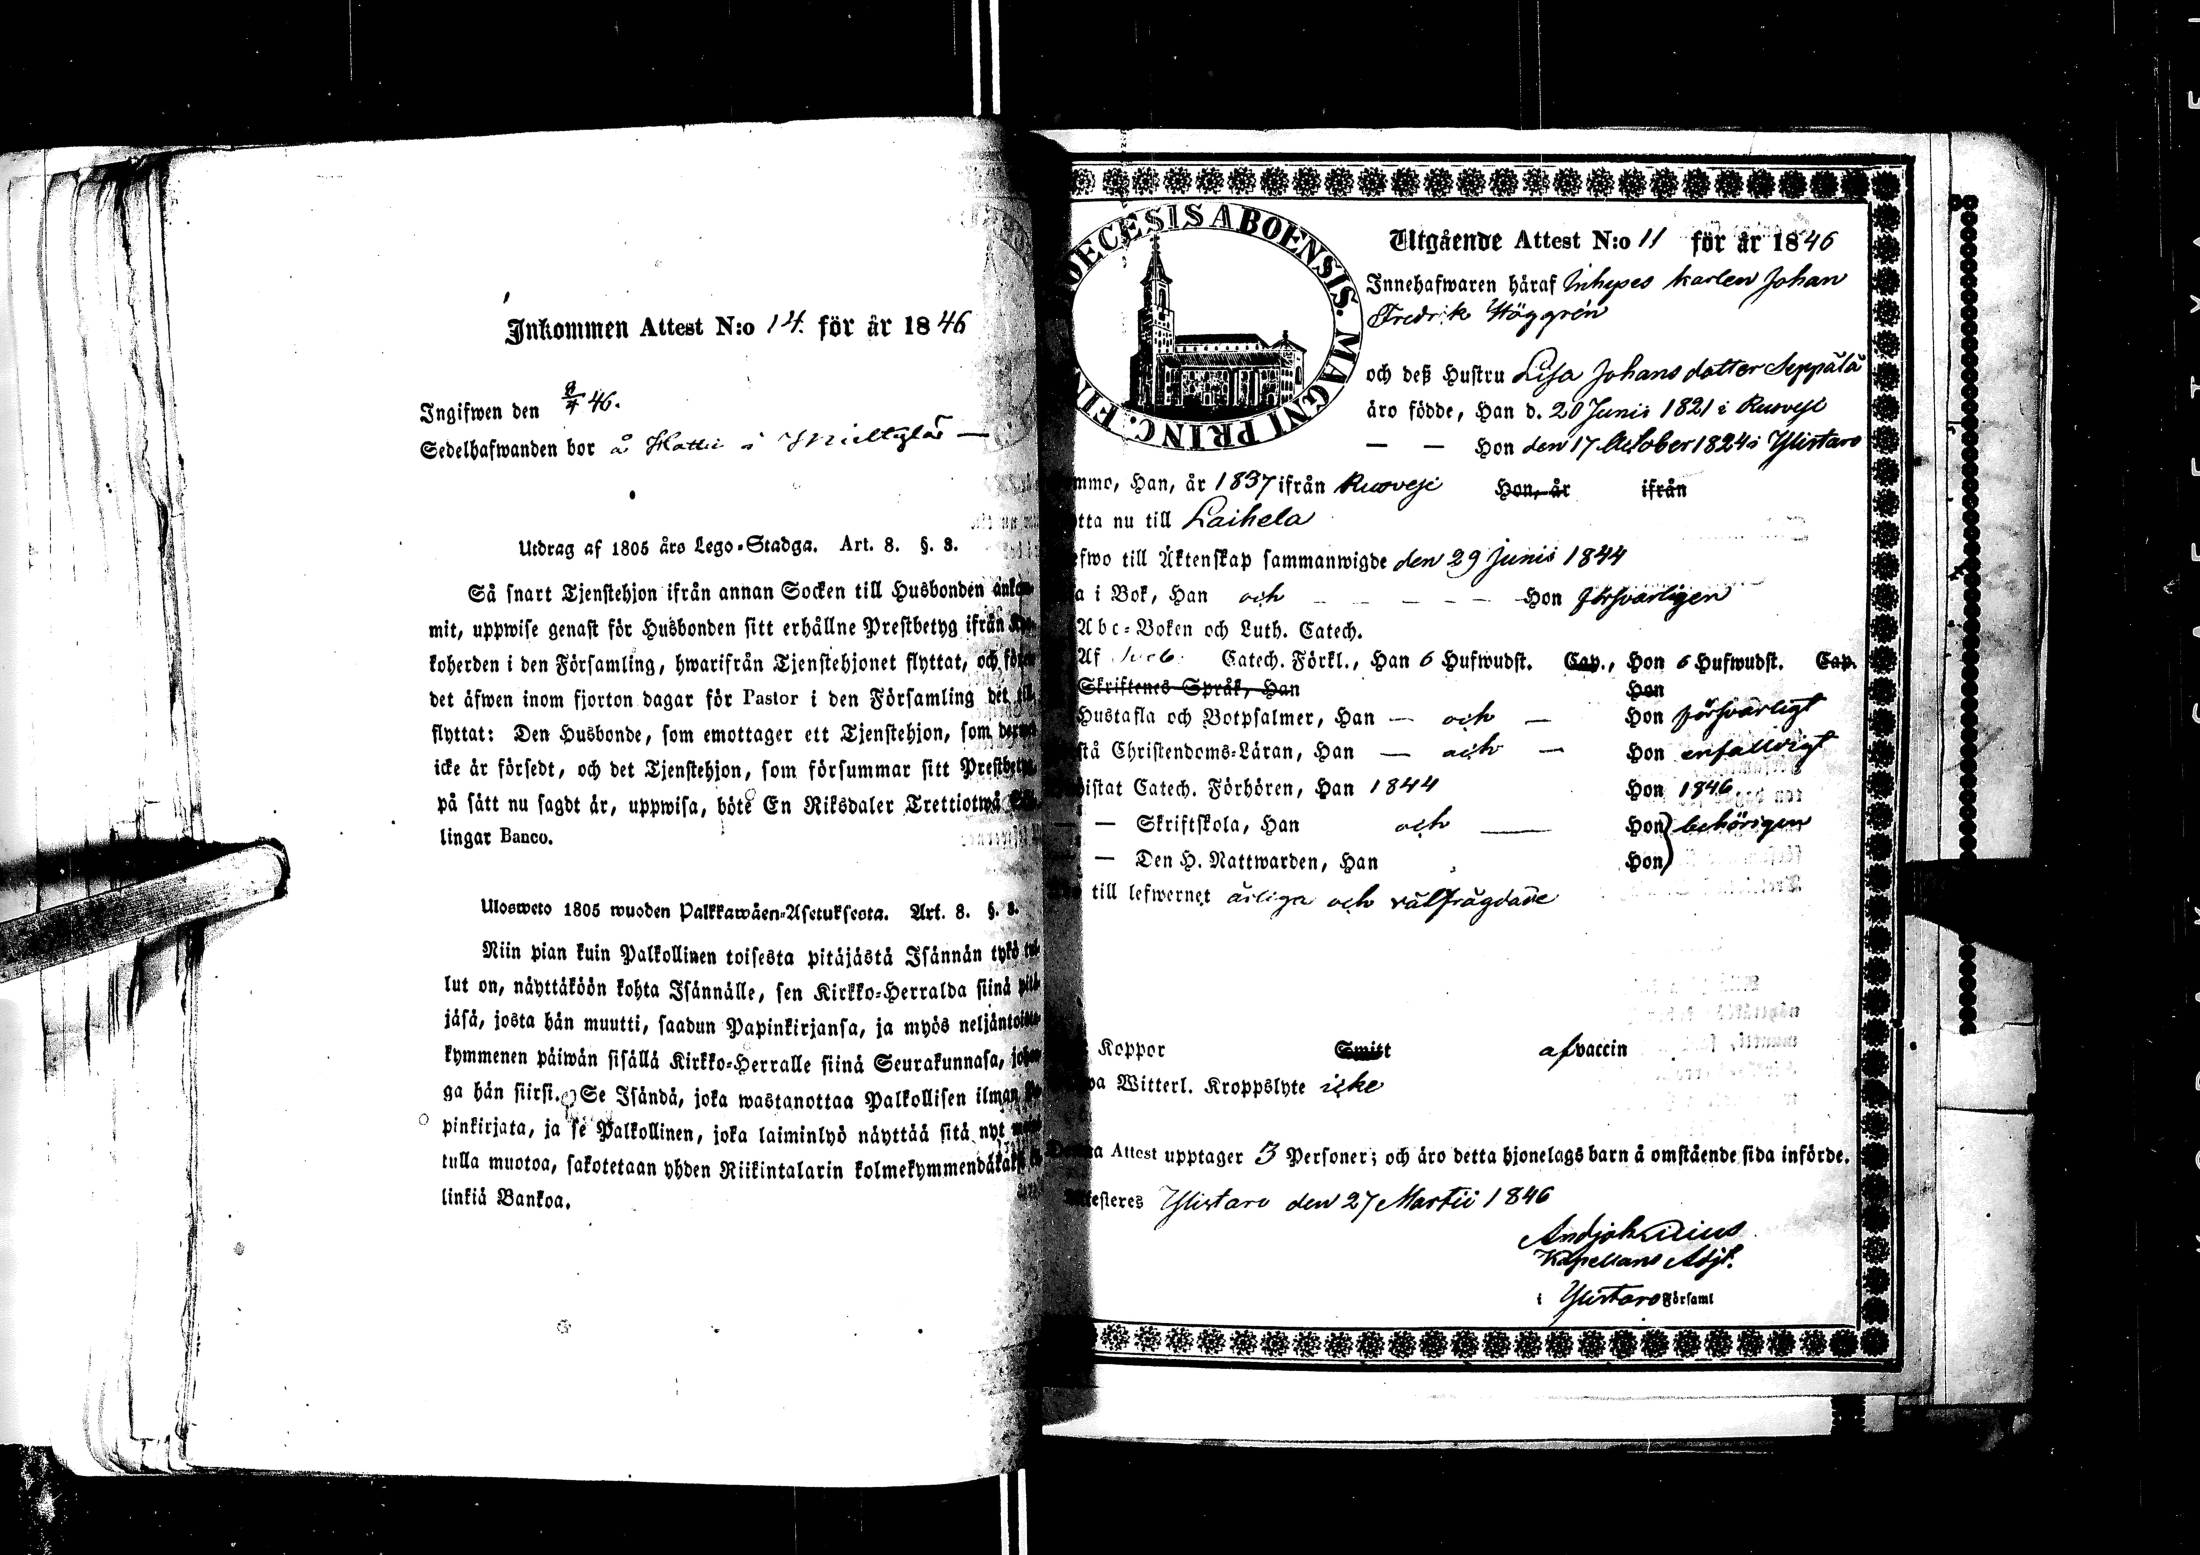 Inkommen Attest N:o 14. för år 1846
Ingifwen den 8/4 46.
Sedelhafwanden bor å i
Utdrag af 1805 års Lego-Stadga. Art. 8. §. 8.
Så snart Tjenstehjon ifrån annan Socken till Husbonden
mit, uppwise genast för Husbonden sitt erhållne Prestbetyg ifrån
koherden i den Församling, hwarifrån Tjenstehjonet flyttat, och
det äfwen inom fjorton dagar för Pastor i den Församling det
flyttat: Den Husbonde, som emottager ett Tjenstehjon, som
icke är försedt, och det Tjenstehjon, som försummar sitt
på sätt nu sagdt är, uppwisa, böte En Riksdaler Trettiotwå
lingar Banco.
Ulosweto 1805 wuoden Palkkawäen-Asetuksesta. Art. 8. §. 8.
Niin pian kuin Palkollinen toisesta pitäjästä Isännän tykö
lut on, näyttäköön kohta Isännälle, sen Kirkko-Herralda siinä
jäsä, josta hän muutti, saadun Papinkirjansa, ja myös
kymmenen päiwän sisällä Kirkko-Herralle siinä Seurakunnasa,
ga hän siirsi. Se Isändä, joka wastanottaa Palkollisen ilman
pinkirjata, ja se Palkollinen, joka laiminlyö näyttää sitä nyt
tulla muotoa, sakotetaan yhden Riikintalarin
linkiä Bankoa.
DIOECESIS ABOENSIS. MAGNI PRINC. FIN
Utgående Attest N:o 11 för år 1846
Innehafwaren häraf Inhyses karlen Johan
Fredrik Häggrén
och deß Hustru Lisa Johansdotter Seppälä
äro födde, Han d. 20 Junii 1821 i Ruovesi
— — Hon den 17 October 1824 i Ylistaro
mmo, Han, år 1837 ifrån Ruovesi Hon, år ifrån
tta nu till Laihela
efwo till Äktenskap sammanwigde den 29 Junii 1844
a i Bok, Han och - - - - - Hon försvarligen
Abc-Boken och Luth. Catech.
Af Catech. Förkl., Han 6 Hufwudst. Cap., Hon 6 Hufwudst. Cap.
Skriftenes Språk, Han Hon
Hustafla och Botpsalmer, Han — och — Hon försvarligt
stå Christendoms-Läran, Han — och — Hon enfalldigt
istat Catech. Förhören, Han 1844 Hon 1846
— Skriftskola, Han och — Hon behörigen
— Den H. Nattwarden, Han Hon
till lefwernet ärliga och välfrägdade
Koppor Smitt af vaccin
Witterl. Kroppslyte icke
Attest upptager 3 Personer; och äro detta hjonelags barn å omstående sida införde.
esteres Ylistaro den 27 Martii 1846
Kapellans Adjt.
i Ylistaro Församl